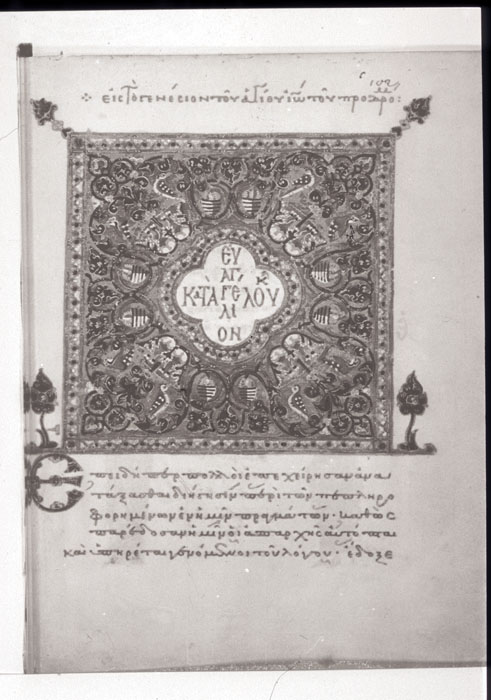 102
εἰς τὸ γενέσιον τοῦ ἁγίου ἰῶ τοῦ προδρο:
ΕΥ
ΑΓ
ΚΑΤᾺ ΓΕ ΛΟΥΚ
ΛΙ
ΟΝ
Ἐπειδήπερ πολλοὶ ἐπεχείρησαν ἀνα
τάξασθαι διήγησιν περὶ τῶν πεπληρο
φορημένων ἐν ἡμῖν πραγμάτων· καθὼς
παρέδοσαν ἡμῖν οἱ ἀπαρχῆς αὐτόπται
καὶ ὑπηρέται γενόμενοι τοῦ λόγου· ἔδοξε